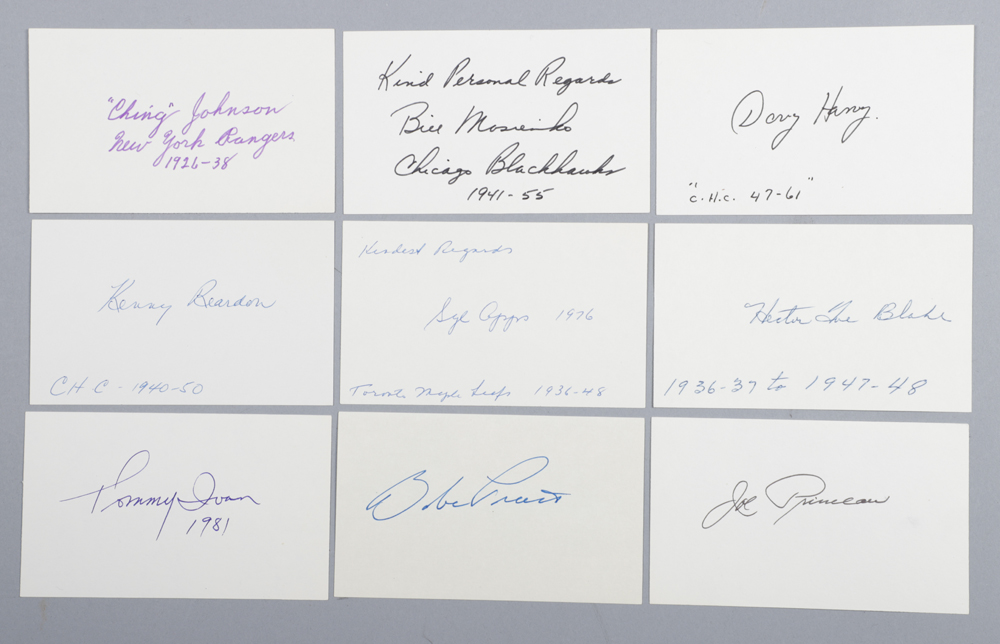 "Ching" Johnson
New York Rangers
1926-38
Kind Personal Regards
Bill Mosienko
Chicago Blackhawks
1941-55
Doug Harvey
"C.H.C. 47-61"
Kenny Reardon
C.H.C - 1940-50
Kindest Regards
Syl Apps 1976
Toronto Maple Leafs 1936-48
Hector Toe Blake
1936-37 to 1947-48
Tommy Ivan
1981
Babe Pratt
Joe Primeau